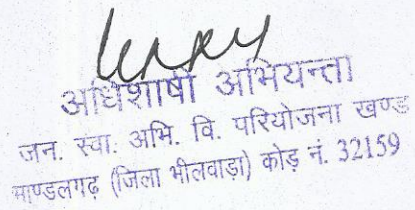 अधिशाषी अभियन्ता
जन. स्वा. अभि. वि. परियोजना खण्ड
माण्डलगढ़ (जिला भीलवाड़ा) कोड़ नं. 32159